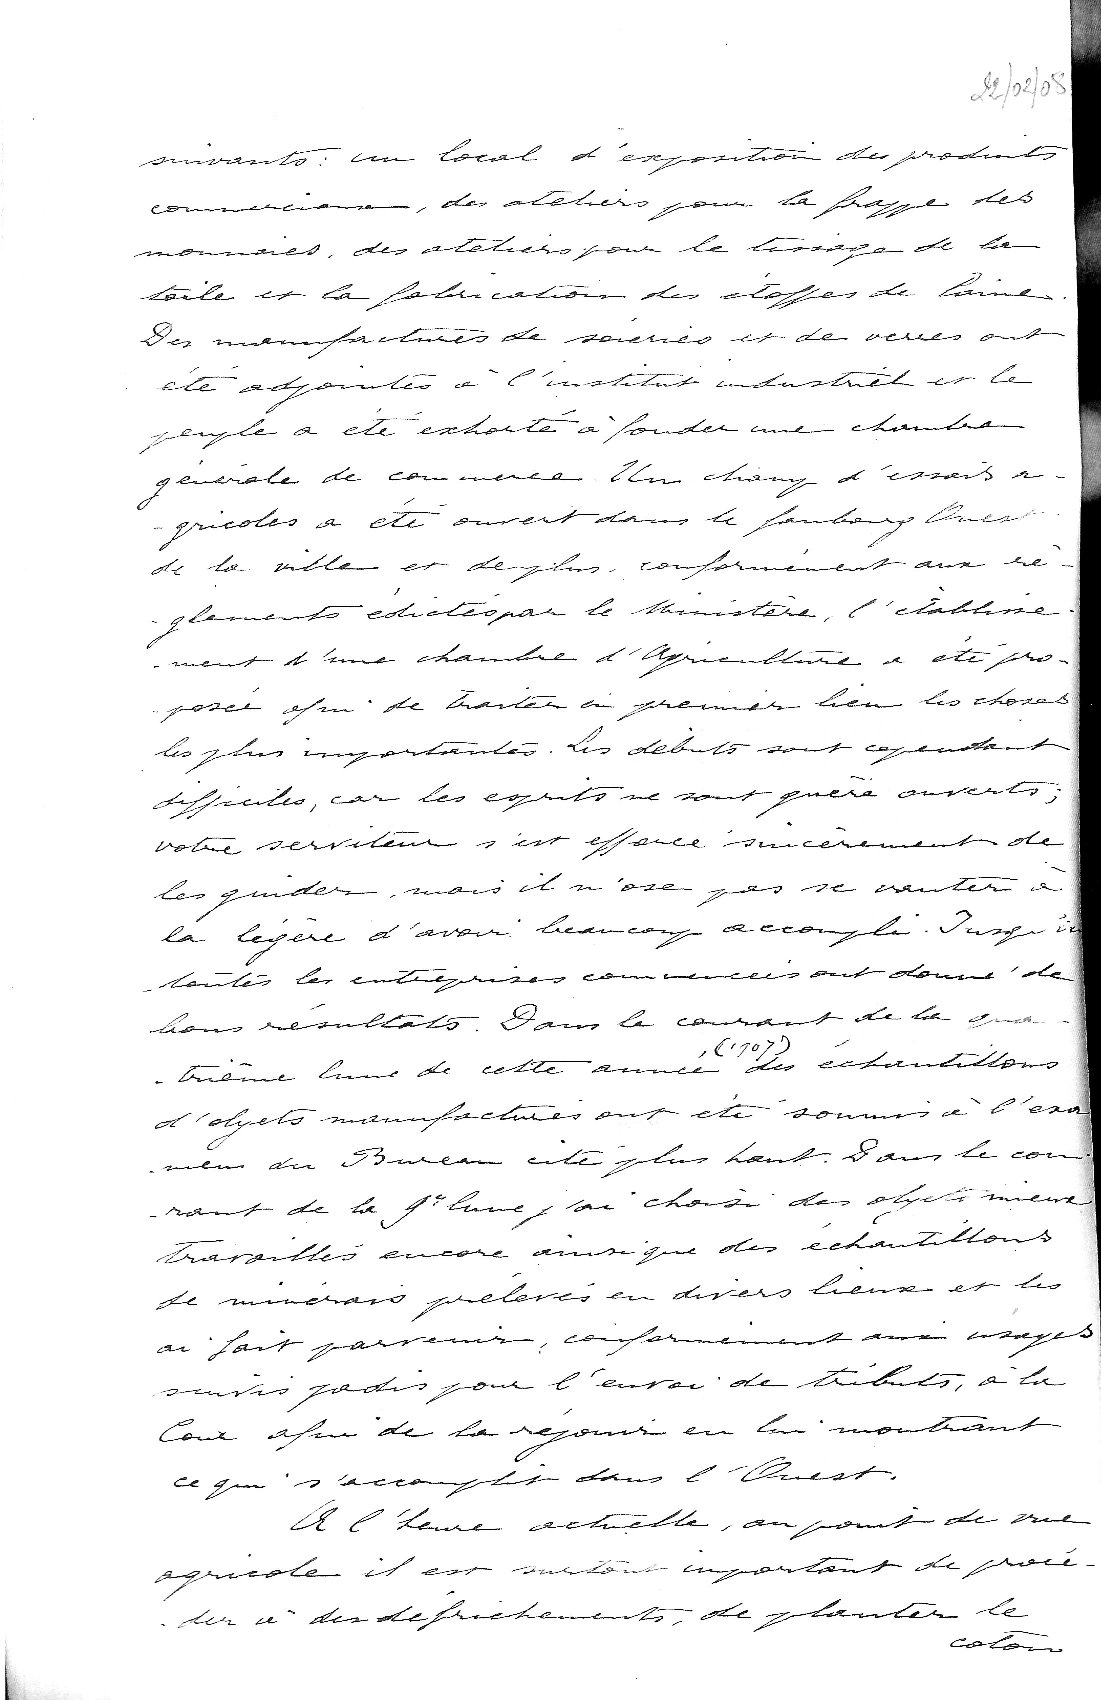 22/02/08
suivants: un local d'exposition des produits
commerciaux, des ateliers pour la frappe des
monnaies, des ateliers pour le tissage de la
toile et la fabrication des étoffes de laine.
Des manufactures de soieries et de verres ont
été adjointes à l'institut industriel et le
peuple a été exhorté à fonder une chambre
générale de commerce. Un champ d'essais a-
-gricoles a été ouvert dans le faubourg Ouest
de la ville et de plus, conformément aux rè-
-glements édictés par le Ministère, l'établisse-
-ment d'une chambre d'Agriculture a été pro-
-posée afin de traiter en premier lieu les choses
les plus importantes. Les débuts sont cependant
difficiles, car les esprits ne sont guère ouverts;
votre serviteur s'est efforcé sincèrement de
les guider, mais il n'ose pas se vanter à
la légère d'avoir beaucoup accompli. Jusqu'ici
toutes les entreprises commencées ont donné de
bons résultats. Dans le courant de la qua-
-trième lune de cette année, (1907) des échantillons
d'objets manufacturés ont été soumis à l'exa
-men du Bureau cité plus haut. Dans le cou-
-rant de la 9e lune j'ai choisi des objets mieux
travaillés encore ainsi que des échantillons
de minerais prélevés en divers lieux et les
ai fait parvenir, conformément aux usages
suivis jadis pour l'envoi de tributs, à la
Cour afin de la réjouir en lui montrant
ce qui s'accomplit dans l'Ouest.
A l'heure actuelle, au point de vue
agricole il est surtout important de procé-
-der à des défrichements, de planter le
coton